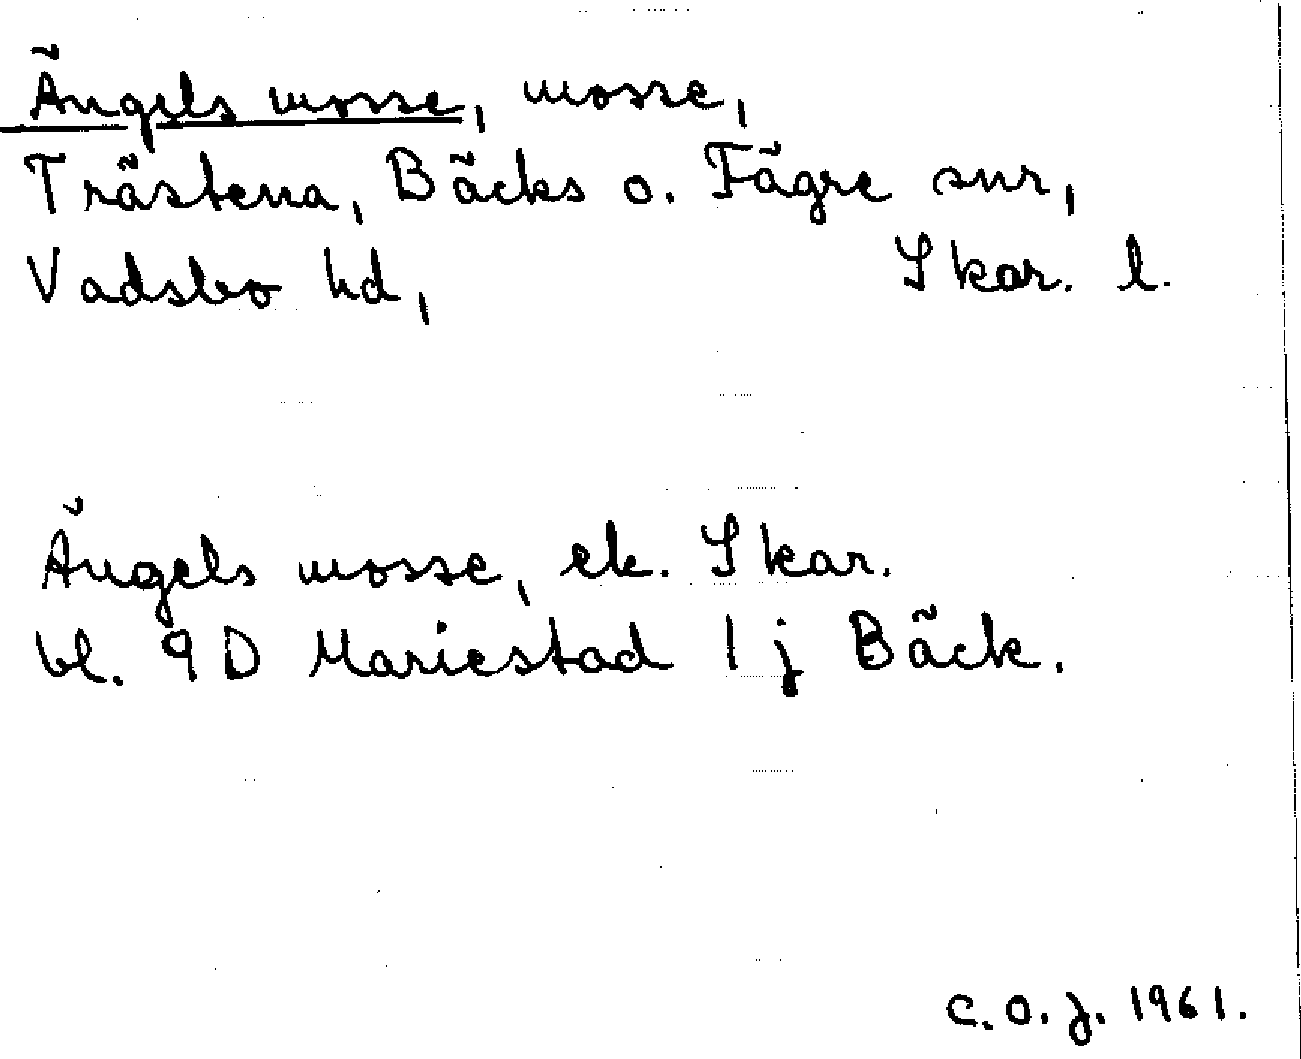 Ängels mosse, mosse,
Trästena, Bäcks o. Fägre snr,
Vadsbo hd, Skar. l.
Ängels mosse, ek. Skar.
bl. 9D Mariestad 1 j Bäck.
C.O.J. 1961.